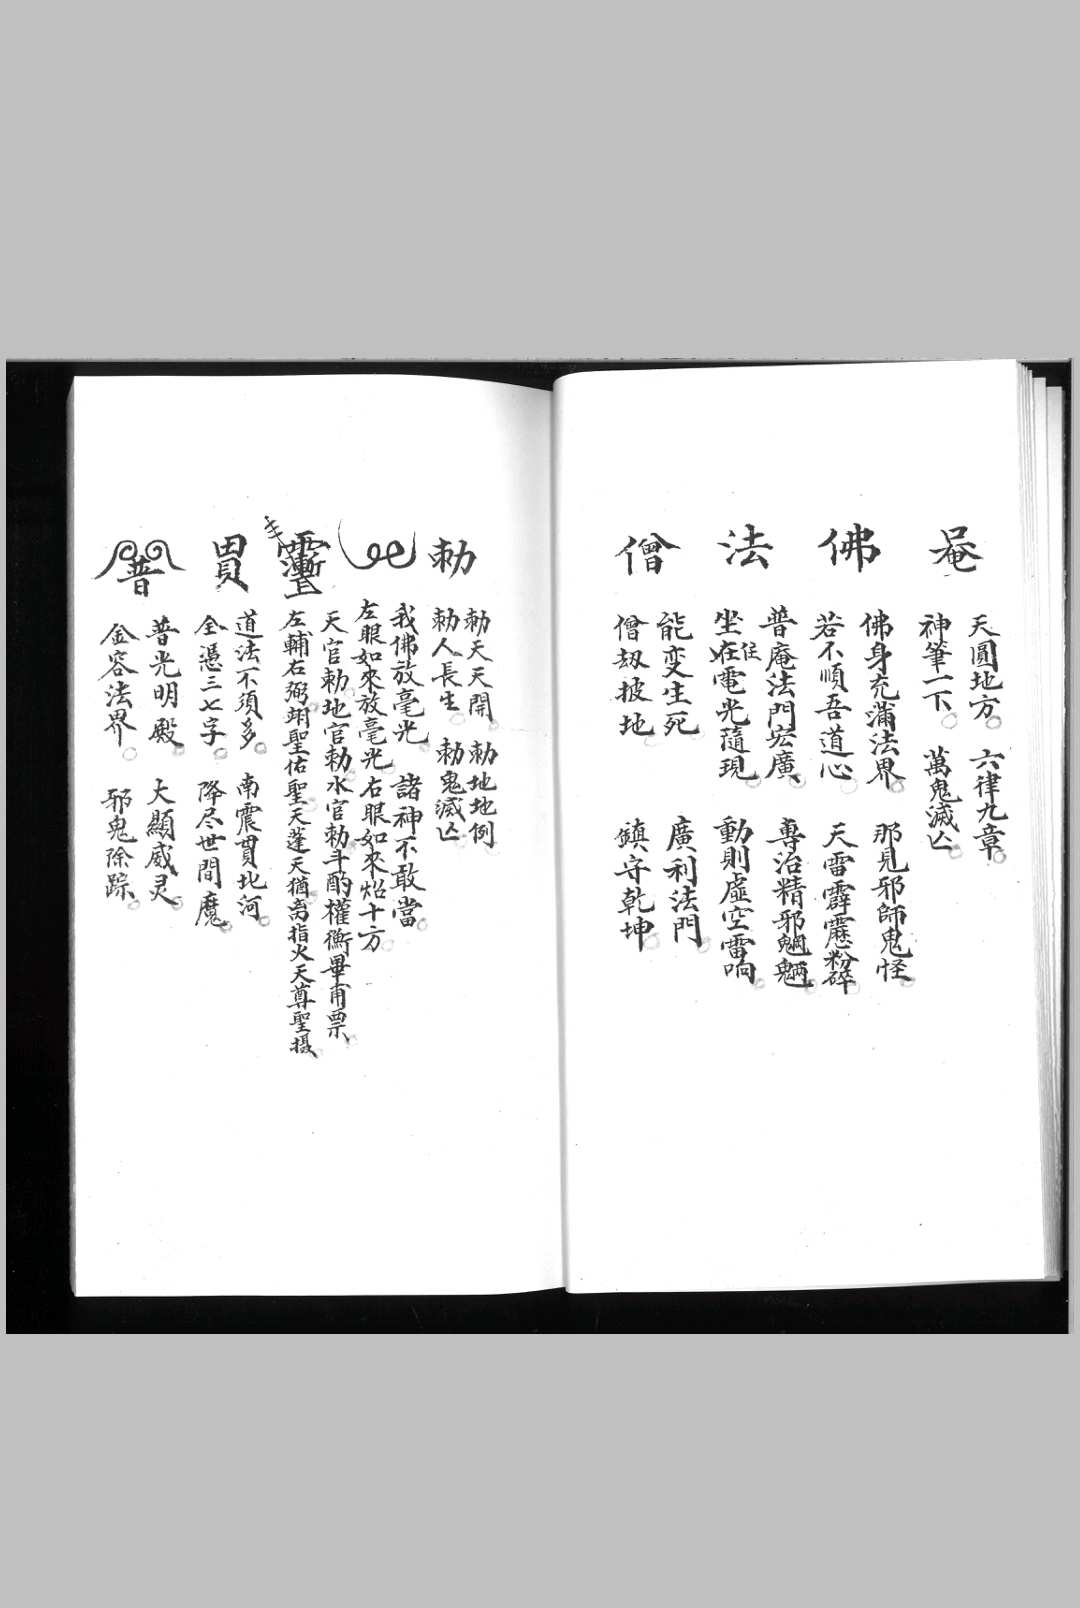 天圓地方 六律九章
神筆一下 萬鬼滅亡
佛
佛身充滿法界 那見邪師鬼怪
若不順吾道心 天雷霹靂粉碎
法
普庵法門宏廣 專治精邪魍魎
坐在住電光隨現 動則虛空雷响
僧
能变生死 廣利法門
僧劫披地 鎮守乾坤
勅
勅天天開 勅地地例
勅人長生 勅鬼滅亡
我佛放毫光 諸神不敢當
左眼如來放毫光右眼如來炤十方
天官勅地官勅水官勅斗酌權衡畢甫票
左輔右弼翊聖佑聖天蓬天猶 指火天尊聖摄
道法不須多 南震貫北河
全憑三七字 降尽世間魔
普
普光明殿 大顯威灵
金容法界 邪鬼除踪